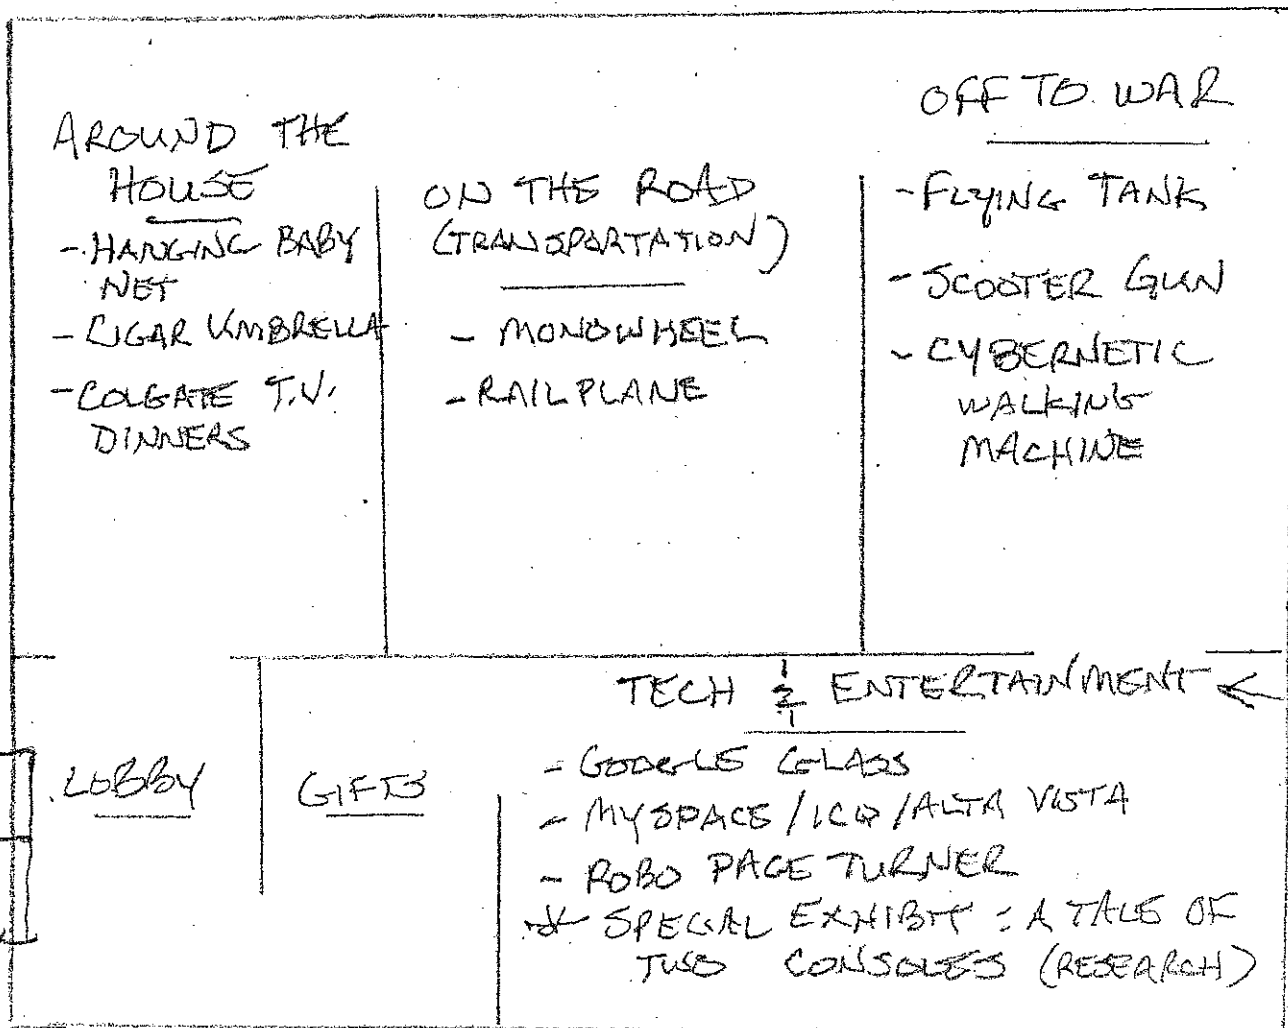 AROUND THE
HOUSE
- HANGING BABY
NET
- CIGAR UMBRELLA
- COLGATE T.V.
DINNERS
ON THE ROAD
(TRANSPORTATION)
- MONOWHEEL
- RAILPLANE
OFF TO WAR
- FLYING TANK
- SCOOTER GUN
- CYBERNETIC
WALKING
MACHINE
LOBBY
GIFTS
TECH & ENTERTAINMENT ←
- GOOGLE GLASS
- MYSPACE/ICQ/ALTA VISTA
- ROBO PAGE TURNER
* SPECIAL EXHIBIT: A TALE OF
TWO CONSOLES (RESEARCH)